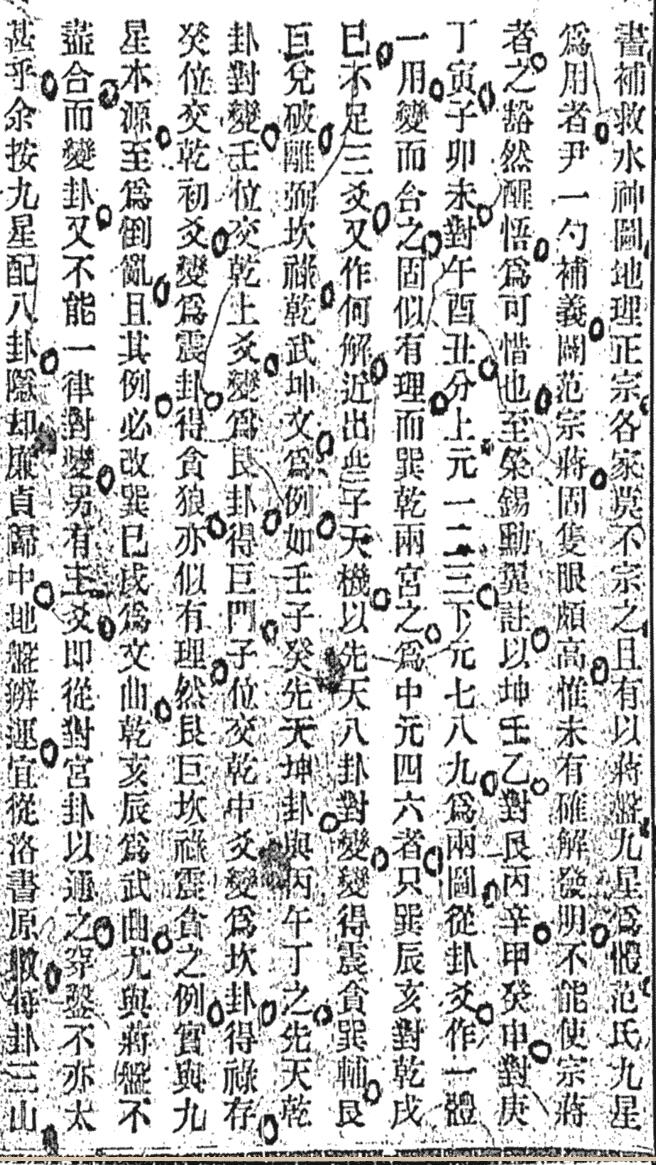 書補救水神圖地理正宗各家莫不宗之且有以蔣盤九星爲體范氏九星
爲用者尹一勺補義闢范宗蔣固隻眼頗高惟未有確解發明不能使宗蔣
者之豁然醒悟爲可惜也至榮錫勳翼註以坤壬乙對艮丙辛甲癸申對庚
丁寅子卯未對午酉丑分上元一二三下元七八九爲兩圖從卦爻作一體
一用變而合之固似有理而巽乾兩宮之爲中元四六者只巽辰亥對乾戌
巳不足三爻又作何解近出些子天機以先天八卦對變變得震貪巽輔艮
巨兌破離弼坎祿乾武坤文爲例如壬子癸先天坤卦與丙午丁之先天乾
卦對變壬位交乾上爻變爲艮卦得巨門子位交乾中爻變爲坎卦得祿存
癸位交乾初爻變爲震卦得貪狼亦似有理然艮巨坎祿震貪之例實與九
星本源至爲倒亂且其例必改巽巳戌爲文曲乾亥辰爲武曲尤與蔣盤不
盡合而變卦又不能一律對變另有主爻即從對宮卦以通之穿鑿不亦太
甚乎余按九星配八卦隱却廉貞歸中地盤辨運宜從洛書原數每卦三山